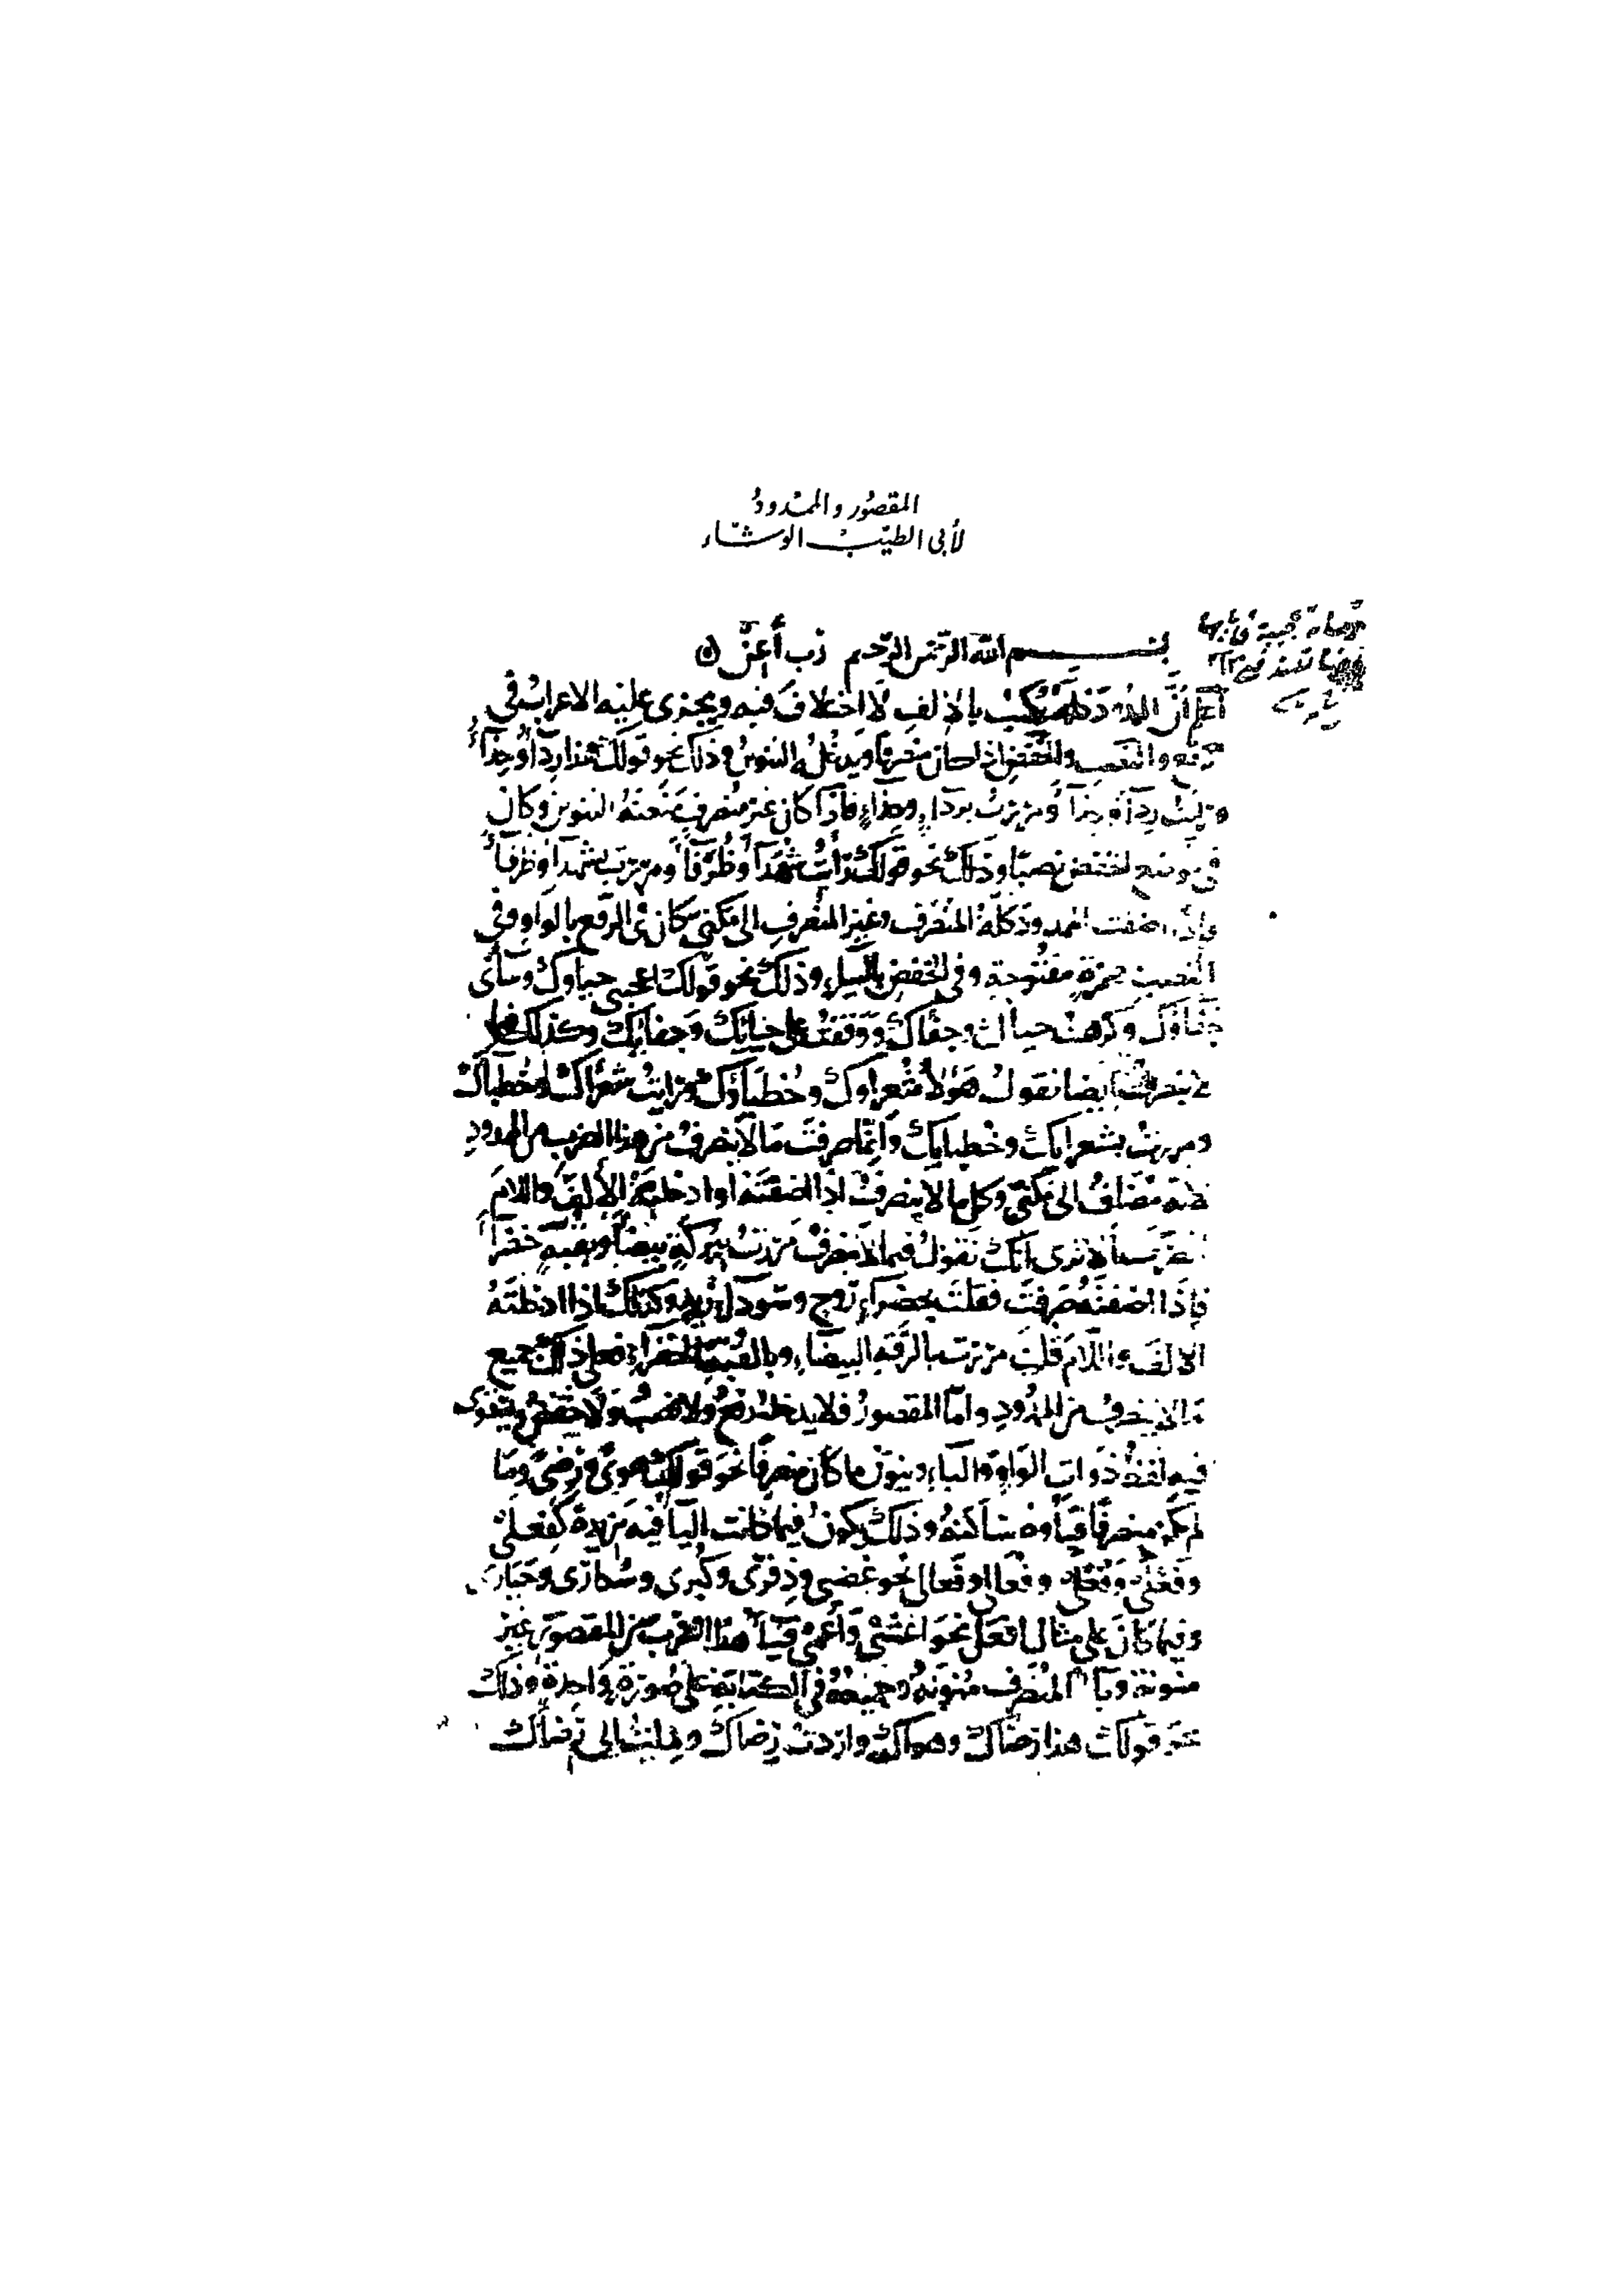 المقصُور والممْدودُ
لأبى الطيّبْ الوشّاء
بسم الله الرحمن الرحيم رَب أعِنْ
اعلم أنَّ الممدودَ كلَّه يُكتبُ بالالفِ لَا اختلافَ فيه ويجرى عليه الاعرابُ في
الرفع والنصب والخفض اذا كان منصرفا ويدخُلُه التنوينُ وذلك نحو قولك هذا رداءٌ وحِذاءٌ
ورايتُ رداءً وحذاءً ومررتُ برداءٍ وحِذاءٍ فاذا كان غير منصرفٍ مَنَعتَهُ التنوين وكان
في موضع الخفض نصبًا وذلك نحو قولك رأيتُ شُهَداءَ وظُرَفاءَ ومررتُ بشهداءَ وظرفاءَ
واذا اضفت الممدود كلَّهُ المنصرف وغير المنصرفِ الى مكنيٍّ كان في الرفع بالواو وفي
النصب بهمزةٍ مفتُوحةٍ وفي الخفضِ بالياءِ وذلك نحو قولك اعجبني حياوك وساءنى
جَفَاوُك وكرهت حياءك وجفاءك ووقفتُ على حيائك وجفائِك وكذلك فيما
لا ينصرفُ ايضا تقولُ هَؤلاء شُعراوك وخُطَباؤك ورايتُ شعراءك وخُطباءك
ومررتُ بشعرايك وخُطبايك وَانّما صرفتَ مَا لَا ينصرفُ من هذا الضرب من الممدودِ
لانه مضَافٌ الى مكنىٍّ وكل ما لا ينصرفُ اذا اضفتَه او ادخلتَ الألفَ واللامَ
الا ترى انّك تقولُ فيما لا ينصرفُ مررتُ ببركةٍ بيضاءَ وبقبةٍ خضراءَ
فاذا اضفتَه صَرفتَ فقلتَ بخضراءِ زوج وسوداءِ زيد وكذلك اذا ادخلتَهُ
الالفَ واللّامَ قلتَ مررتُ بالبركةِ البيضاءِ وبالقُبةِ الخضراءِ فعلى ذلك جميع
ما لا ينصرفُ من الممدُودِ وامّا المقصورُ فلا يدخله رفعٌ ولا نصبٌ ولا خفضٌ ويستوى
فيه لفظُ ذَواتِ الوَاوِ والياءِ وينون ما كان منصرفًا نحوَ قولك هوىً ورِضىً وما
لم يكن منصرفًا فياؤه ساكنةٌ وذلك يكونُ فيما كانت اليا فيه مزيدة كفَعلَى
وفعْلى وفُعْلَى وفُعالى وفَعالى نحو غضبى وذِفرَى وكُبرى وسُكارَى وحَبَارَى
وفيما كانَ على مثال افعَل نحوَ اعشى وَأعمى فياءُ هذا الضرب من المقصور غير
منونة وياءُ المنصَرف منونةٌ وجميعُهُ في الكتابةِ على صُورةٍ واحدةٍ وذلك
نحو قولك هذا رضاك وهواك واردتُ رِضاك وملتُ الى رِضاك